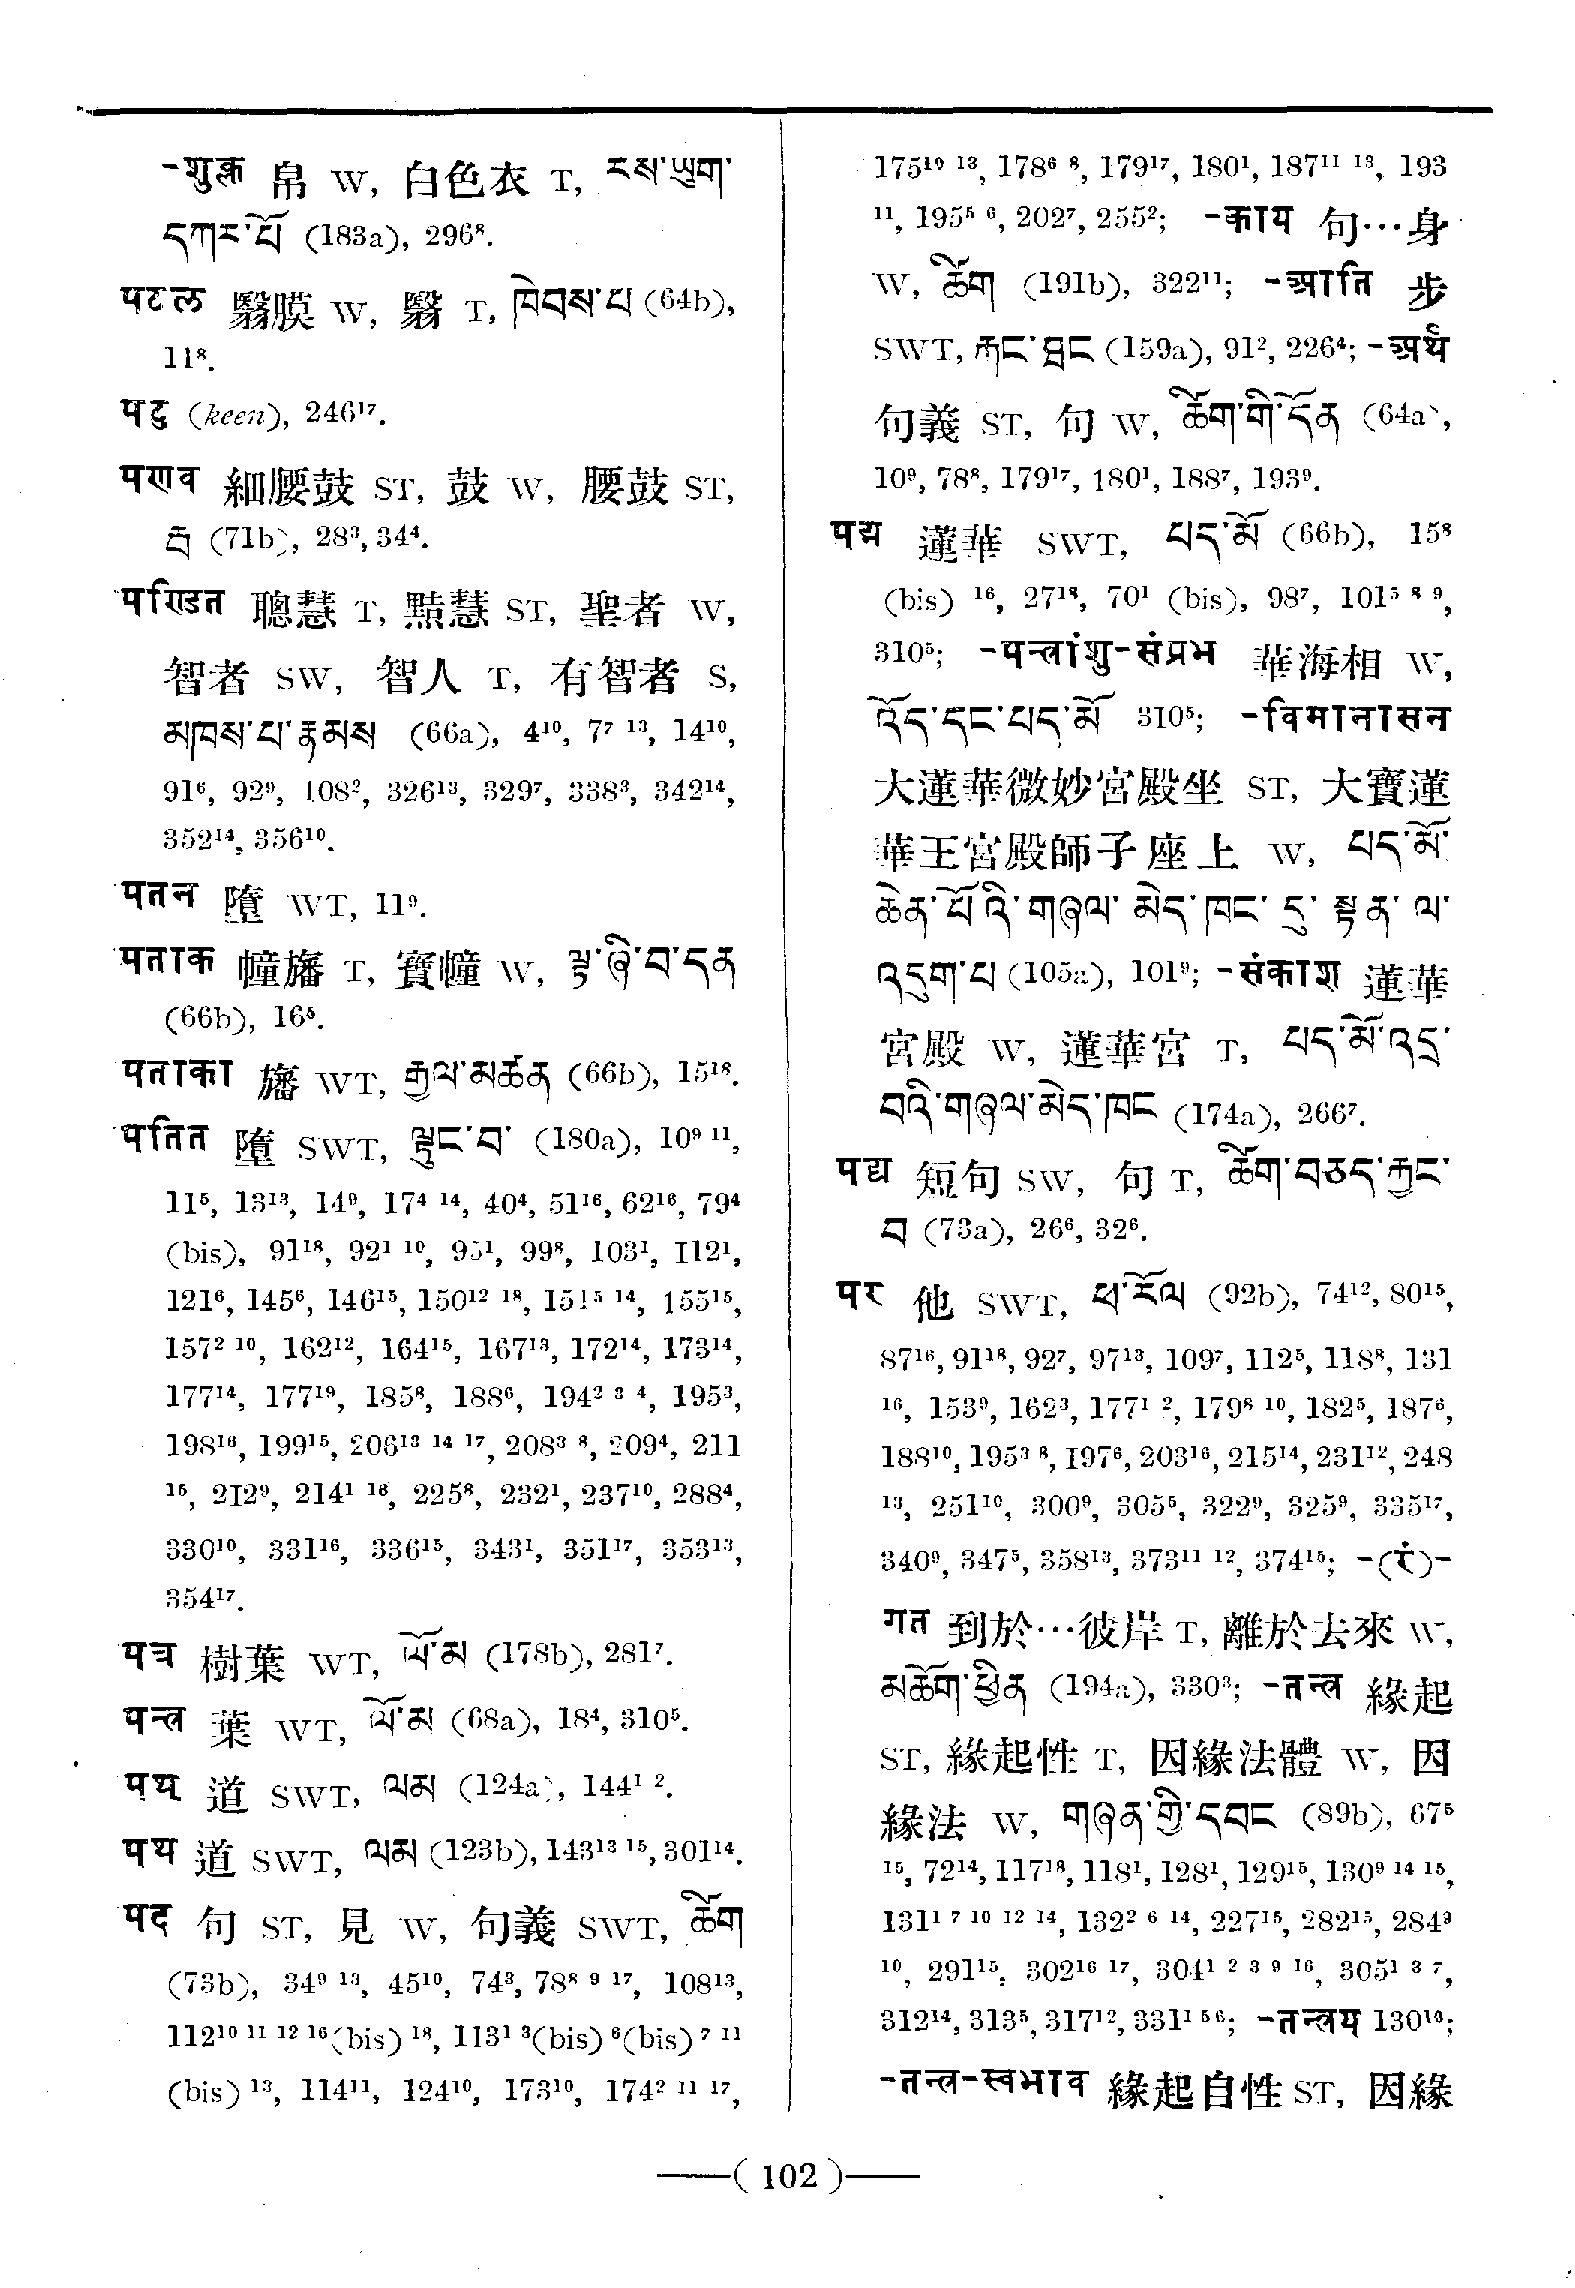 -शुक्ल 帛 W, 白色衣 T, རས་ཡུག་
དཀར་པོ (183a), 296⁸.
पटल 翳膜 W, 翳 T, ཁེབས་པ (64b),
11⁸.
पटु (keen), 246¹⁷.
पणव 細腰鼓 ST, 鼓 W, 腰鼓 ST,
(71b), 28³, 34⁴.
पण्डित 聰慧 T, 黠慧 ST, 聖者 W,
智者 SW, 智人 T, 有智者 S,
མཁས་པ་རྣམས (66a), 4¹⁰, 7⁷ ¹³, 14¹⁰,
91⁶, 92⁹, 108², 326¹³, 329⁷, 338³, 342¹⁴,
352¹⁴, 356¹⁰.
पतन 墮 WT, 11⁹.
पताक 幢旛 T, 寶幢 W, ལྷ་ཞི་བ་དན
(66b), 16⁵.
पताका 旛 WT, རྒྱལ་མཚན (66b), 15¹⁸.
पतित 墮 SWT, ལྟུང་བ་ (180a), 10⁹ ¹¹,
11⁵, 13¹³, 14⁹, 17⁴ ¹⁴, 40⁴, 51¹⁶, 62¹⁶, 79⁴
(bis), 91¹⁸, 92¹ ¹⁰, 95¹, 99⁸, 103¹, 112¹,
121⁶, 145⁶, 146¹⁵, 150¹² ¹⁸, 151⁵ ¹⁴, 155¹⁵,
157² ¹⁰, 162¹², 164¹⁵, 167¹³, 172¹⁴, 173¹⁴,
177¹⁴, 177¹⁹, 185⁸, 188⁶, 194² ³ ⁴, 195³,
198¹⁶, 199¹⁵, 206¹³ ¹⁴ ¹⁷, 208³ ⁸, 209⁴, 211
¹⁵, 212⁹, 214¹ ¹⁶, 225⁸, 232¹, 237¹⁰, 288⁴,
330¹⁰, 331¹⁶, 336¹⁵, 343¹, 351¹⁷, 353¹³,
354¹⁷.
पत्र 樹葉 WT, ལོ་མ (178b), 281⁷.
पन्त्र 葉 WT, ལོ་མ (68a), 18⁴, 310⁵.
पथ 道 SWT, ལམ (124a), 144¹ ².
पथ 道 SWT, ལམ (123b), 143¹³ ¹⁵, 301¹⁴.
पद 句 ST, 見 W, 句義 SWT, ཚིག
(73b), 34⁹ ¹³, 45¹⁰, 74³, 78⁸ ⁹ ¹⁷, 108¹³,
112¹⁰ ¹¹ ¹² ¹⁶(bis) ¹⁸, 113¹ ³(bis) ⁶(bis) ⁷ ¹¹
(bis) ¹³, 114¹¹, 124¹⁰, 173¹⁰, 174² ¹¹ ¹⁷,
175¹⁰ ¹³, 178⁶ ⁸, 179¹⁷, 180¹, 187¹¹ ¹³, 193
¹¹, 195⁵ ⁶, 202⁷, 255²; -काय 句…身
W, ཚིག (191b), 322¹¹; -आति 步
SWT, རྐང་ཐང (159a), 91², 226⁴; -अर्थ
句義 ST, 句 W, ཚིག་གི་དོན (64a),
10⁹, 78⁸, 179¹⁷, 180¹, 188⁷, 193⁹.
पद्म 蓮華 SWT, པད་མོ (66b), 15⁸
(bis) ¹⁶, 27¹⁸, 70¹ (bis), 98⁷, 101⁵ ⁸ ⁹,
310⁵; -पन्त्रांशु-संप्रभ 華海相 W,
འོད་དང་པད་མོ 310⁵; -विमानासन
大蓮華微妙宮殿坐 ST, 大寶蓮
華王宮殿師子座上 W, པད་མོ་
ཆེན་པོའི་གཞལ་མེད་ཁང་དུ་སྟན་ལ་
འདུག་པ (105a), 101⁹; -संकाश 蓮華
宮殿 W, 蓮華宮 T, པད་མོ་འདྲ་
བའི་གཞལ་མེད་ཁང (174a), 266⁷.
पद्य 短句 SW, 句 T, ཚིག་བཅད་རྐྱང་
བ (73a), 26⁶, 32⁶.
पर 他 SWT, ཕ་རོལ (92b), 74¹², 80¹⁵,
87¹⁶, 91¹⁸, 92⁷, 97¹³, 109⁷, 112⁵, 118⁸, 131
¹⁶, 153⁹, 162³, 177¹ ², 179⁸ ¹⁰, 182⁵, 187⁶,
188¹⁰, 195³ ⁸, 197⁶, 203¹⁶, 215¹⁴, 231¹², 248
¹³, 251¹⁰, 300⁹, 305⁵, 322⁹, 325⁹, 335¹⁷,
340⁹, 347⁵, 358¹³, 373¹¹ ¹², 374¹⁵; -(रं)-
गत 到於…彼岸 T, 離於去來 W,
མཆོག་ཕྱིན (194a), 330³; -तन्त्र 緣起
ST, 緣起性 T, 因緣法體 W, 因
緣法 W, གཞན་གྱི་དབང (89b), 67⁵
¹⁵, 72¹⁴, 117¹⁸, 118¹, 128¹, 129¹⁵, 130⁹ ¹⁴ ¹⁵,
131¹ ⁷ ¹⁰ ¹² ¹⁴, 132² ⁶ ¹⁴, 227¹⁵, 282¹⁵, 284⁹
¹⁰, 291¹⁵, 302¹⁶ ¹⁷, 304¹ ² ³ ⁹ ¹⁶, 305¹ ³ ⁷,
312¹⁴, 313⁵, 317¹², 331¹ ⁵ ⁶; -तन्त्रय 130¹⁰;
-तन्त्र-स्वभाव 緣起自性 ST, 因緣
—( 102 )—